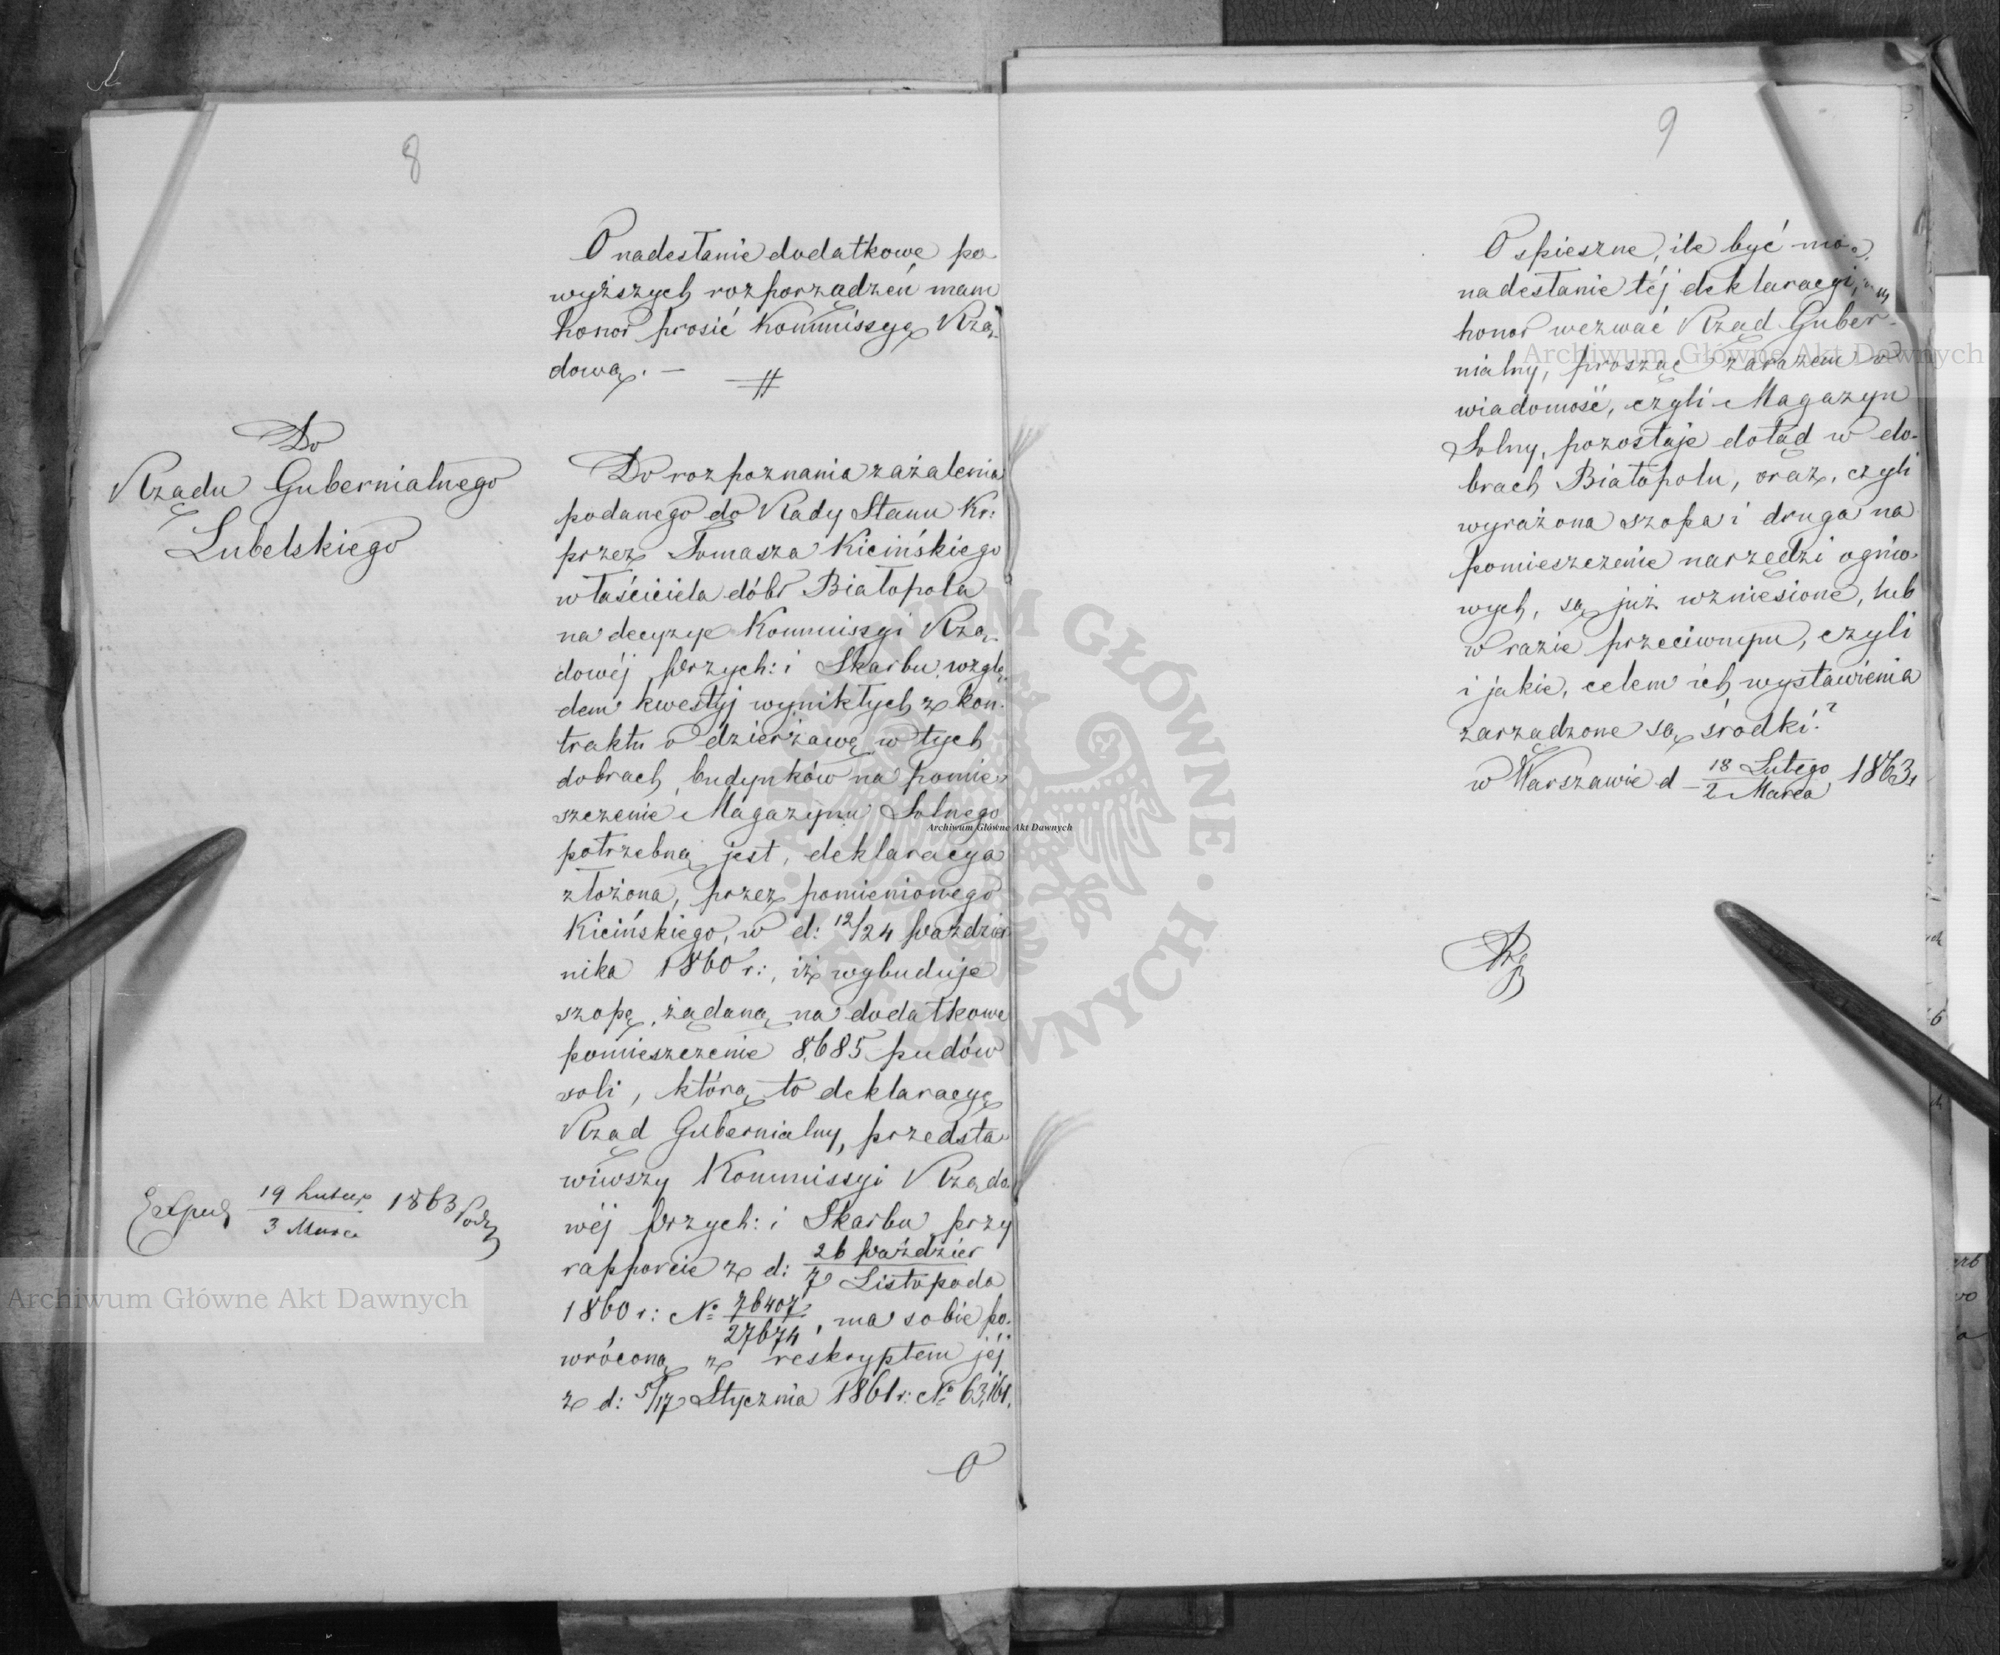 8
O nadesłanie dodatkowe po-
wyższych rozporządzeń mam
honor prosić Kommissyę Rzą-
dową. —
Do
Rządu Gubernialnego
Lubelskiego
Do rozpoznania zażalenia
podanego do Rady Stanu Kr:
przez Tomasza Kicińskiego
właściciela dóbr Białopola
na decyzye Kommissyi Rzą-
dowéj Przych: i Skarbu, wzglę-
dem kwestyj wynikłych z kon-
traktu o dzierżawę w tych
dobrach budynków na pomie-
szczenie Magazynu Solnego
potrzebną jest, deklaracya
złożona, przez pomienionego
Kicińskiego, w d: 12/24 Paździer
nika 1860 r:, iż wybuduje
szopę, żądaną na dodatkowe
pomieszczenie 8,685 pudów
soli, którą to deklaracyę
Rząd Gubernialny, przedsta-
wiwszy Kommissyi Rządo-
wéj Przych: i Skarbu przy
rapporcie z d: 26 Paździer / 7 Listopada
1860 r: № 76407 / 27674, ma sobie po-
wróconą z reskryptem jéj
z d: 5/17 Stycznia 1861 r: № 63,161.
O
19 Lutego / 3 Marca 1863
9
O spieszne, ile być mo
nadesłanie téj deklaracyi,
honor wezwać Rząd Guber-
nialny, prosząc zarazem o
wiadomość, czyli Magazyn
Solny, pozostaje dotąd w do-
brach Białopolu, oraz, czyli
wyrażona szopa i druga na
pomieszczenie narzędzi ognio-
wych, są już wzniesione, lub
w razie przeciwnym, czyli
i jakie, celem ich wystawienia
zarządzone są środki?
w Warszawie d — 18 Lutego / 2 Marca 1863
Archiwum Główne Akt Dawnych
Archiwum Główne Akt Dawnych
Archiwum Główne Akt Dawnych